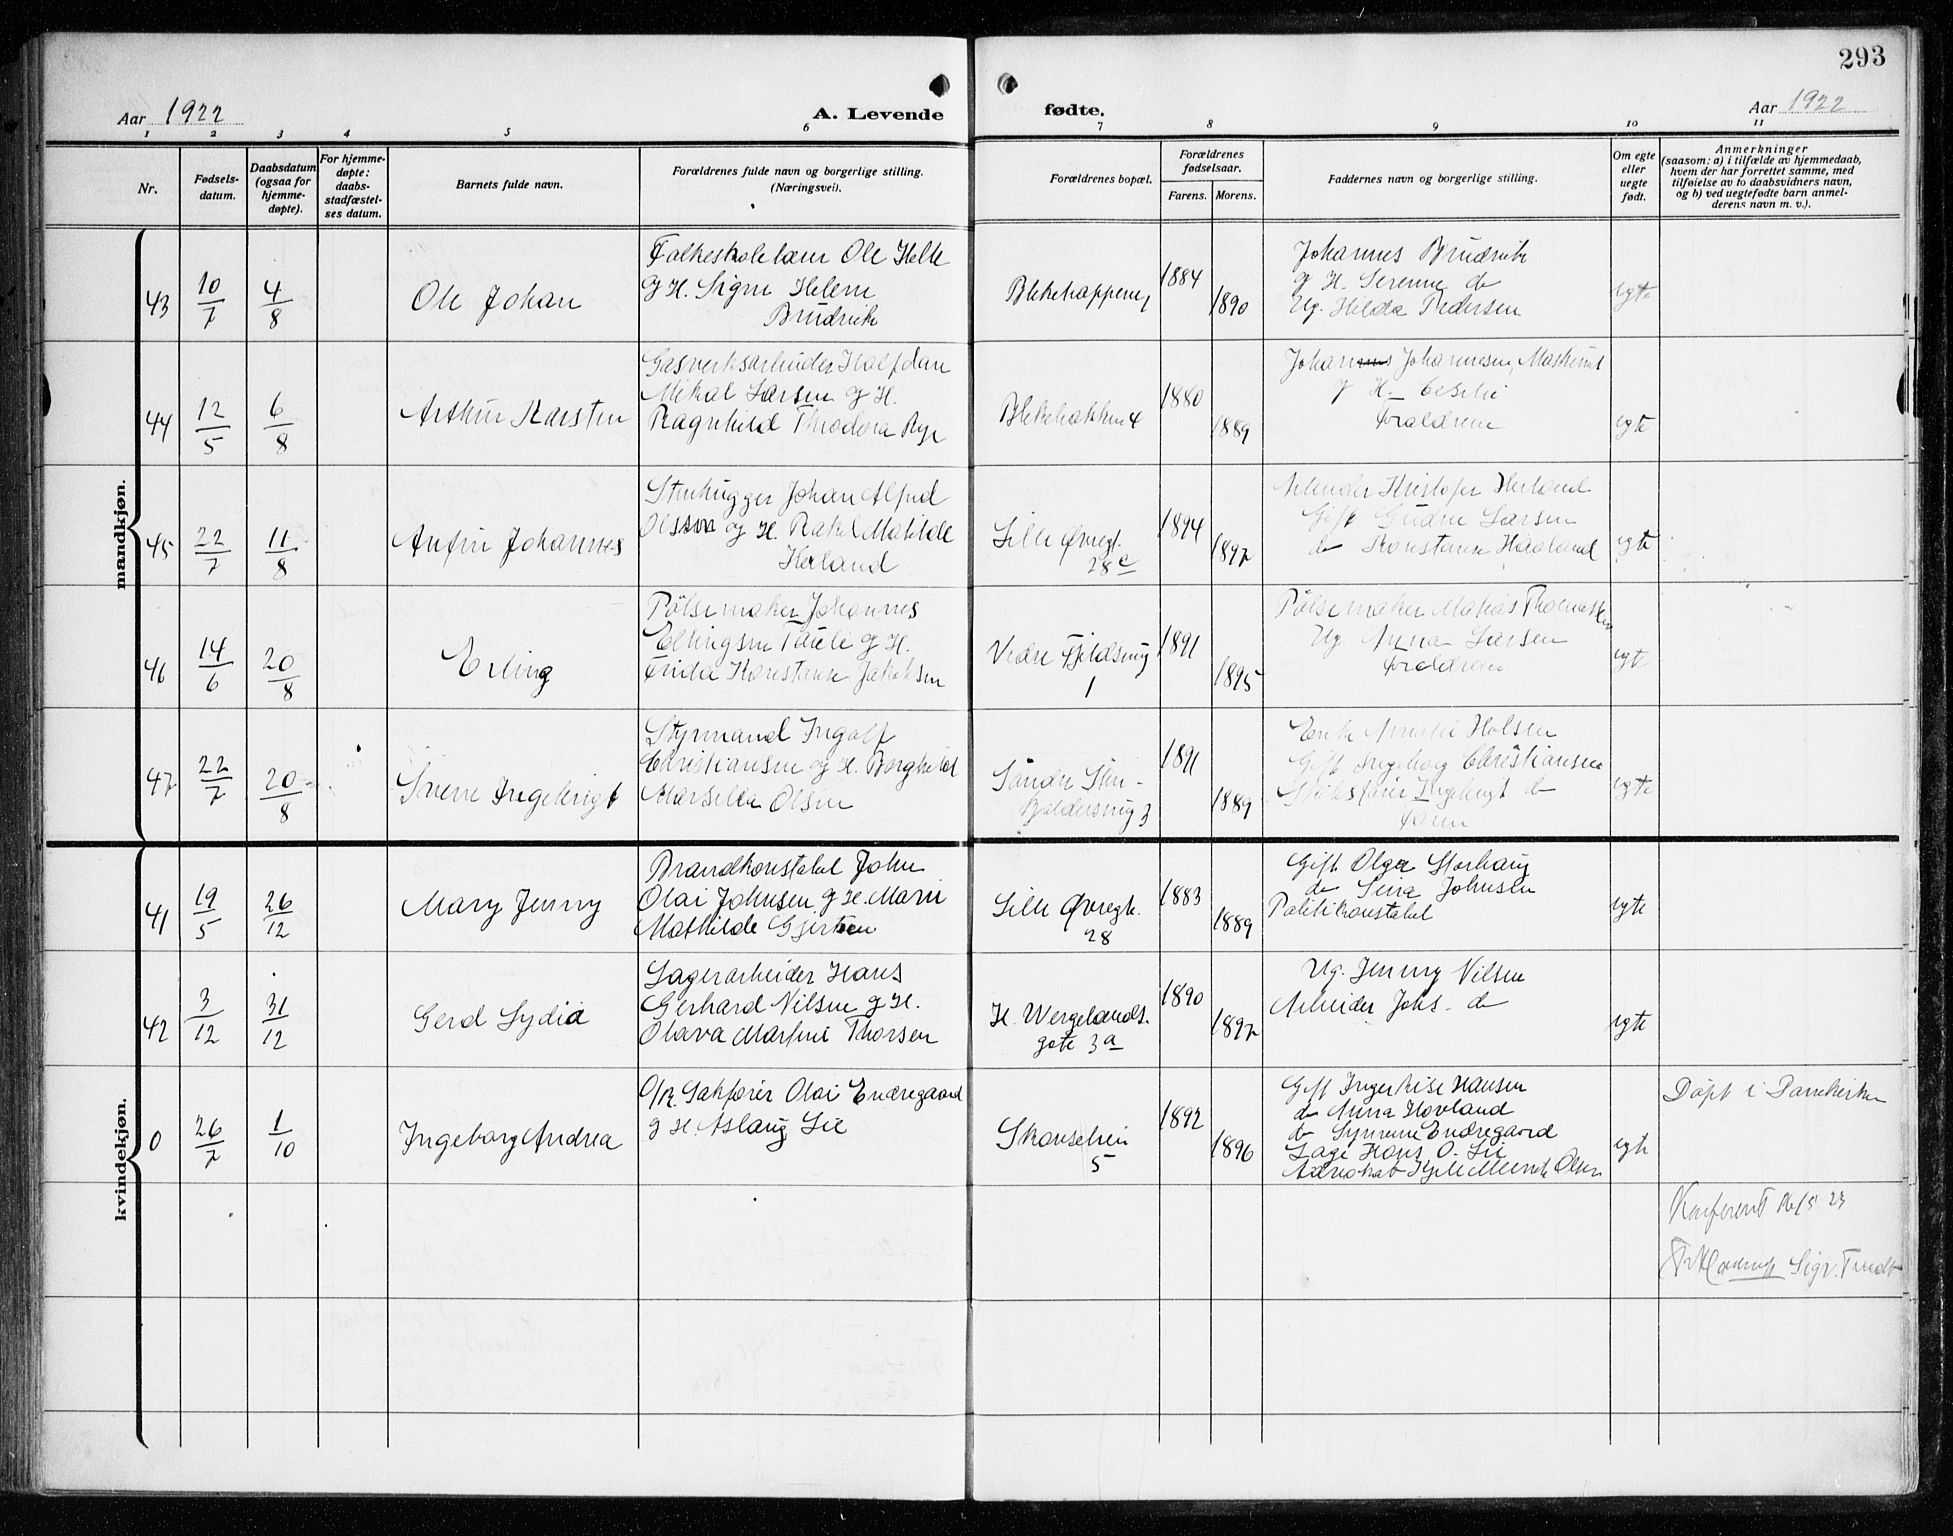 293
Aar 1922
A. Levende
fødte.
Aar 1922
1 2 3 4 5 6 7 8 9 10 11
Nr.
Fødsels-
datum.
Daabsdatum
(ogsaa for
hjemme-
døpte).
For hjemme-
døpte:
daabs-
stadfæstel-
ses datum.
Barnets fulde navn.
Forældrenes fulde navn og borgerlige stilling.
(Næringsvei).
Forældrenes bopæl.
Forældrenes
fødselsaar.
Farens. Morens.
Faddernes navn og borgerlige stilling.
Om egte
eller
uegte
født.
Anmerkninger
(saasom: a) i tilfælde av hjemmedaab,
hvem der har forrettet samme, med
tilføielse av to daabsvidners navn,
og b) ved uegtefødte barn anmel-
derens navn m. v.).
mandkjøn.
43
10/7
4/8
Ole Johan
Folkeskolelærer Ole Helle
og H. Signe Helene
Brudvik
1884
1890
Johannes Brudvik
og H. Serenne do
Ug. Hilda Pedersen
egte
44
12/5
6/8
Arthur Karsten
Gasverksarbeider Halfdan
Mikal Larsen og H.
Ragnhild Theodora Rye
Blekebakken 4
1880
1889
Johannesen, Maskinist
og H. Cesilie
Forældrene
egte
45
22/7
11/8
Anfin Johannes
Stenhugger Johan Alfred
Olsson og H. Rakel Matilde
Haland
Lille Øvregt.
28 c
1894
1897
Arbeider Kristofer
Gift Gudrun Larsen
do Konstanse
egte
46
14/6
20/8
Erling
Pölsemaker Johannes
Ellingsen Taule og H.
Frida Konstanse Jakobsen
Vedre Fjeldsmug
1
1891
1895
Pölsemaker Matias
Ug Anna Larsen
Forældrene
egte
47
22/7
20/8
Sverre Ingebrigt
Styrmand Ingolf
Christiansen og H. Borghild
Marselia Olsen
Söndre Sten-
kjeldersmug 3
1891
1889
Enke Amalie Holsen
Gift Ingeborg Christiansen
Skibsfører Ingebrigt do
Faren
egte
kvindekjøn.
41
19/5
26/12
Mary Jenny
Brandkonstabel John
Olai Johnsen og H. Marie
Mathilde Gjertsen
Lille Øvregt.
28
1883
1889
Gift Olga Storhaug
do Sina Johnsen
Politikonstabel
egte
42
3/12
31/12
Gerd Lydia
Lagerarbeider Hans
Gerhard Nilsen og H.
Olava Martine Thorsen
H. Wergelands.
gate 3a
1890
1897
Ug. Jenny Nilsen
Arbeider Johs. do
egte
0
26/7
1/10
Ingeborg Andrea
O/R. Sakfører Olai Enæregaard
og H. Aslaug Lie
Skanselien
5
1892
1896
Gift Ingerlise Hansen
do Anna Hovland
do Synneve Enæregaard
Læge Hans O. Lie
Advokat Olsen
egte
Döpt i Domkirken
Konferert 23
Sigv.